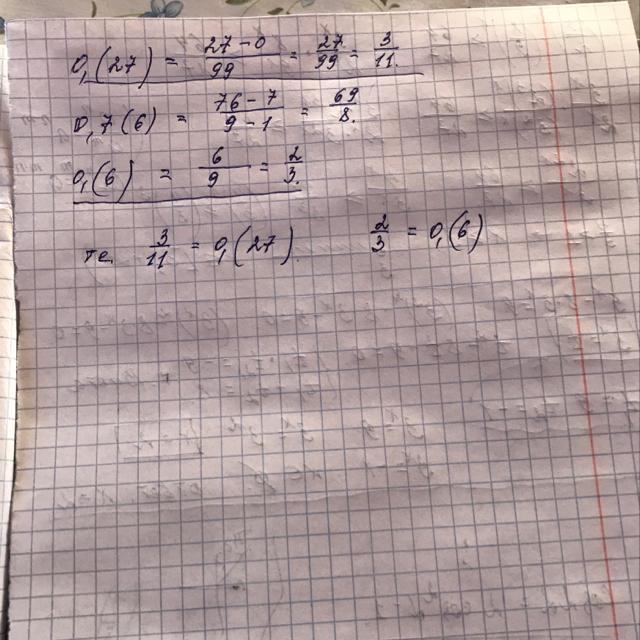 0,(27) = 27-0/99 = 27/99 = 3/11.
0,7(6) = 76-7/9-1 = 69/8.
0,(6) = 6/9 = 2/3.
те. 3/11 = 0,(27). 2/3 = 0,(6)